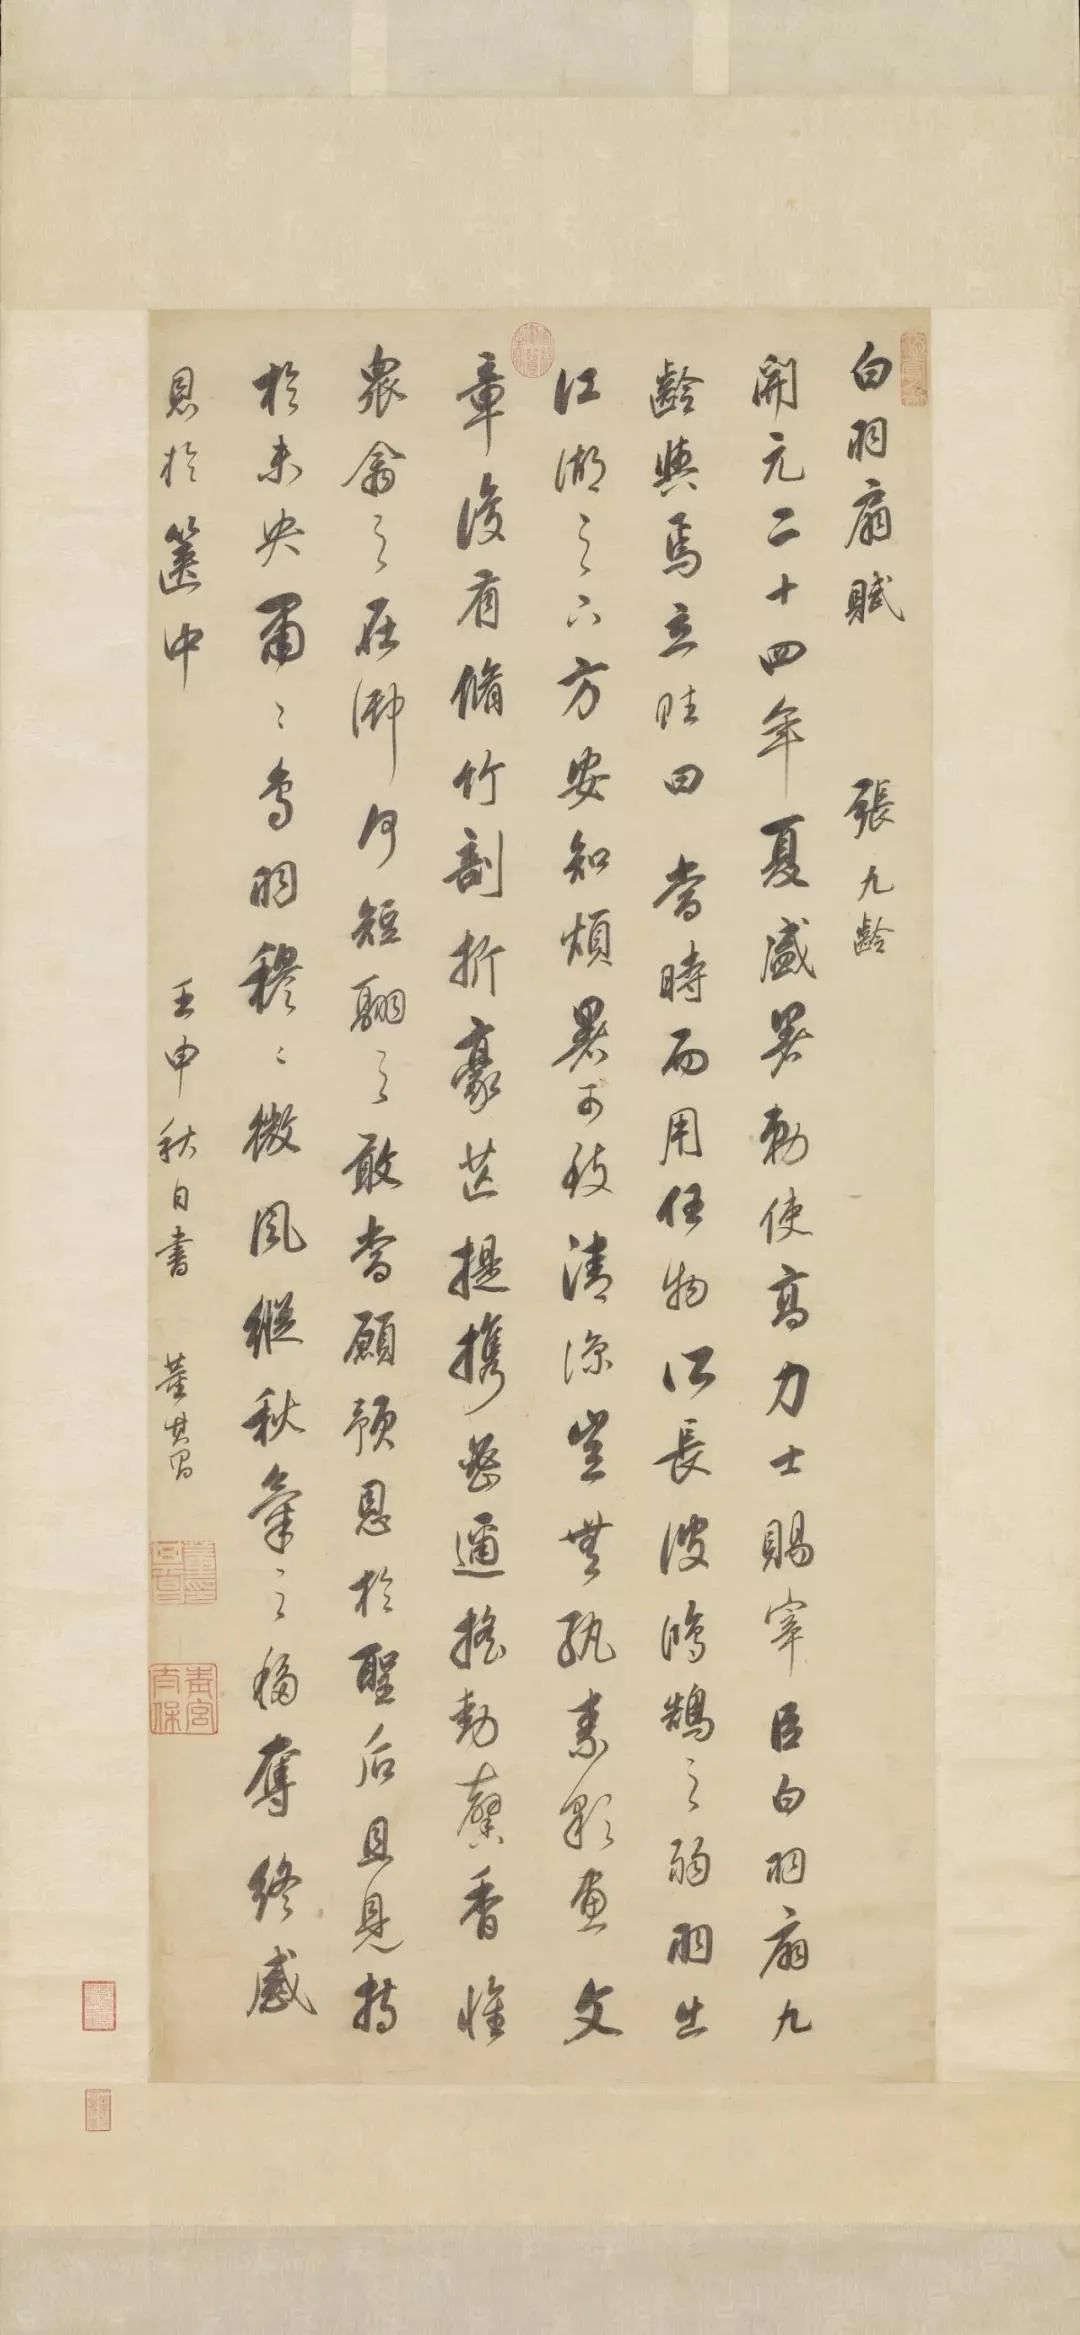 白羽扇賦 張九齡
開元二十四年夏盛暑勅使高力士賜宰臣白羽扇九
齡與焉立賦曰當時而用任物所長彼鴻鵠之弱羽出
江湖之下方安知煩暑可致清涼豈無紈素彩畫文
章復有脩竹剖析豪芒提攜密邇搖動馨香惟
眾禽之在御何短翮之敢當顧預恩於聖后且見持
於未央肅〻鳥羽穆〻微風縱秋氣之移奪終感
恩於篋中 壬申秋日書 董其昌
董其昌印
青宮太保